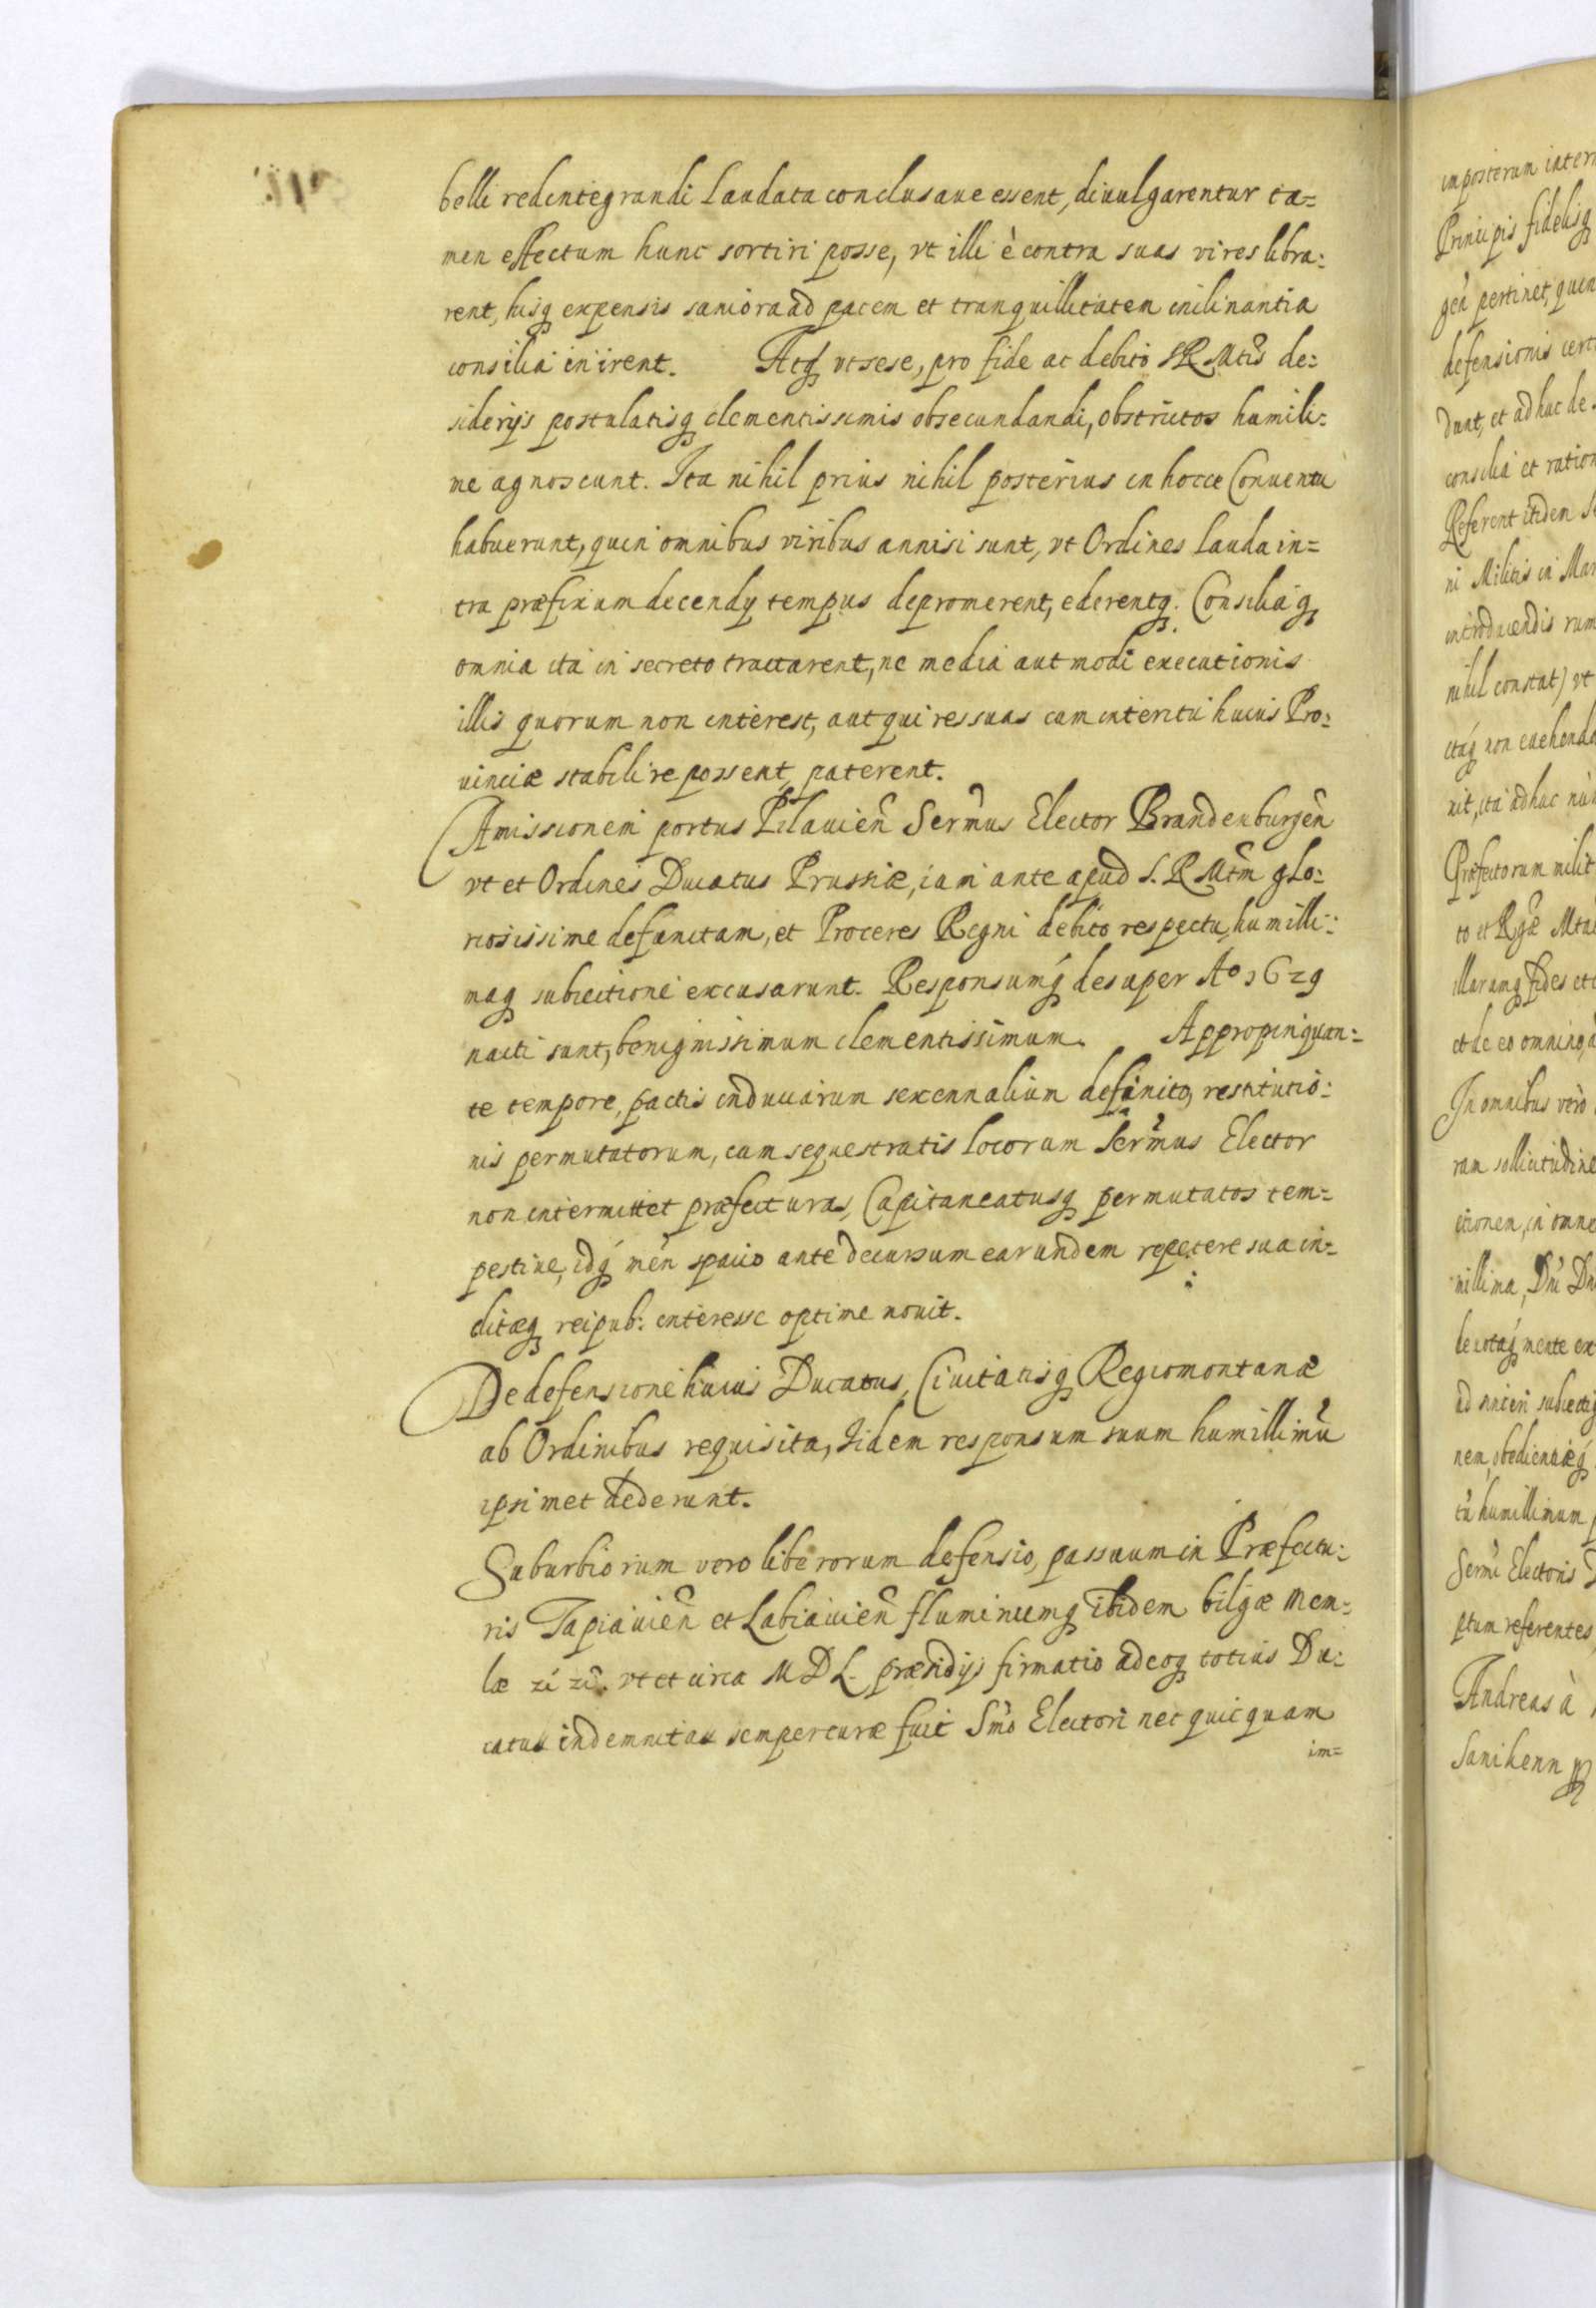 belli redintegrandi laudata conclusaue essent, diuulgarentur ta=
men effectum hunc sortiri posse, vt illi è contra suas vires libra:
rent, hisq expensis saniora ad pacem et tranquillitatem inclinantia
consilia inirent. Atq vt sese, pro fide ac debito S R Mtis de:
siderijs postulatisq clementissimis obsecundandi, obstrictos humili:
me agnoscunt. Ita nihil prius nihil posterius in hocce Conuentu
habuerunt, quin omnibus viribus annisi sunt, vt Ordines lauda in=
tra præfixum decendy tempus depromerent, ederentq. Consiliaq
omnia ita in secreto tractarent, ne media aut modi executionis
illis quorum non interest, aut qui res suas cum interitu huius Pro:
uinciæ stabilire possent, paterent.
Amissionem portus Pilauien Sermus Elector Brandenburgen
vt et Ordines Ducatus Prussiæ, iam ante apud S. R Mtm glo:
riosissime defunctam, et Proceres Regni debito respectu, humilli:
maq subiectione excusarunt. Responsumq desuper Ao 1629
nacti sunt, benignissimum clementissimum. Appropinquan=
te tempore, pactis induciarum sexennalium definito, restitutio:
nis permutatorum, cum sequestratis locorum Sermus Elector
non intermittet præfecturas, Capitaneatusq permutatos tem=
pestiue, idq men spacio ante decursum earundem repetere sua in=
clitæq reipub: interesse optime nouit.
De defensione huius Ducatus, Ciuitatisq Regiomontanæ
ab Ordinibus requisita, Iidem responsum suum humillimu
ipsimet dederunt.
Suburbiorum vero liberorum defensio, passuum in Præfectu:
ris Tapiauien et Labiauien fluminumq ibidem bilgæ Mem=
læ vt et circa M D L. præsidijs firmatio adeoq totius Du:
catus indemnitas semper curæ fuit Smo Electori nec quicquam
im=
imposterum
Principis fidelisq
pertinet,
defensionis
dunt, et adhuc de
consilia et ration
Referent itidem
ni Militis in Mar
introducendis rum
nihil constat) vt
itaq non euehend
nit, ita adhuc
Præfectorum milit
to et Rgæ Mta
illarumq fides et
et de eo omnino,
In omnibus vero
ram sollicitudine
ctionem, in omne
millima, Dni Dn
deuotaq mente ex
ad sinceri subiecti
nem obedientiæq
tu humillimum
Sermi Electoris
ptum referentes
Andreas à